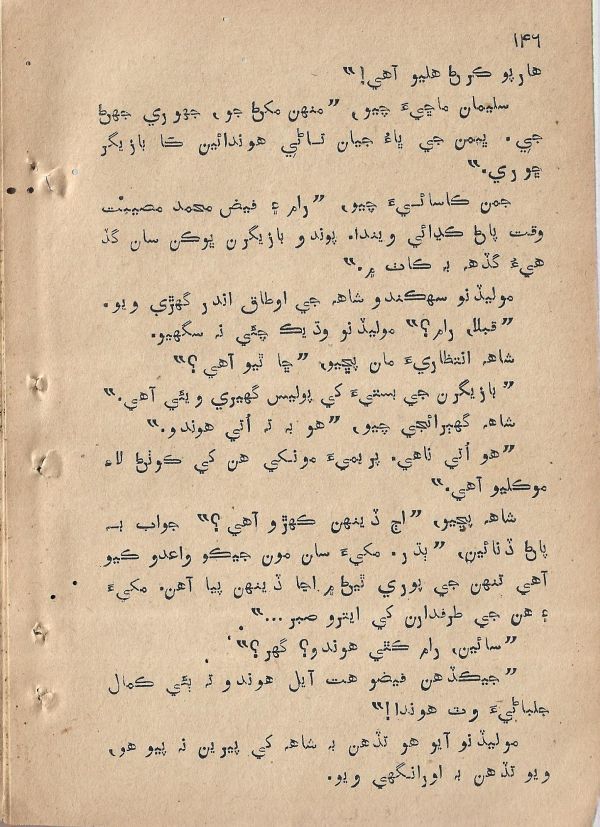 ۱۴۶
هارپو ڪرڻ هليو آهي!”
سليمان ماڇيءَ چيو, ”منهن مکڻ جو, جهوري جهڻ
جي. ڀيمن جي ڀاءُ جيان نساڻي هوندائين ڪا بازيگر
ڇوري.”
جمن ڪاسائيءَ چيو, ”رام ۽ فيض محمد مصيبت
وقت پاڻ ڪڍائي ويندا. پوندو بازيگرن ڀوڪن سان گڏ
هيءُ گڏهه به کات ۾.”
موليڏنو سهڪندو شاهه جي اوطاق اندر گهڙي ويو.
”قبلا, رام؟” موليڏنو وڌيڪ چئي نه سگهيو.
شاهه انتظاريءَ مان پڇيو, ”ڇا ٿيو آهي؟”
”بازيگرن جي بستيءَ کي پوليس گهيري ويئي آهي.”
شاهه گهبرائجي چيو, ”هو به ته اُتي هوندو.”
”هو اُتي ناهي. پريميءَ مونکي هن کي ڪوٺڻ لاءِ
موڪليو آهي.”
شاهه پڇيو, ”اڄ ڏينهن ڪهڙو آهي؟” جواب به
پاڻ ڏنائين, ”ٻڌر. مکيءَ سان مون جيڪو واعدو ڪيو
آهي تنهن جي پوري ٿيڻ ۾ اڃا ڏينهن پيا آهن. مکيءَ
۽ هن جي طرفدارن کي ايترو صبر...”
”سائين, رام ڪٿي هوندو؟ گهر؟”
”جيڪڏهن فيضو هت آيل هوندو ته ٻئي ڪمال
جلباڻيءَ وٽ هوندا!”
موليڏنو آيو هو تڏهن به شاهه کي پيرين نه پيو هو,
ويو تڏهن به اورانگهي ويو.